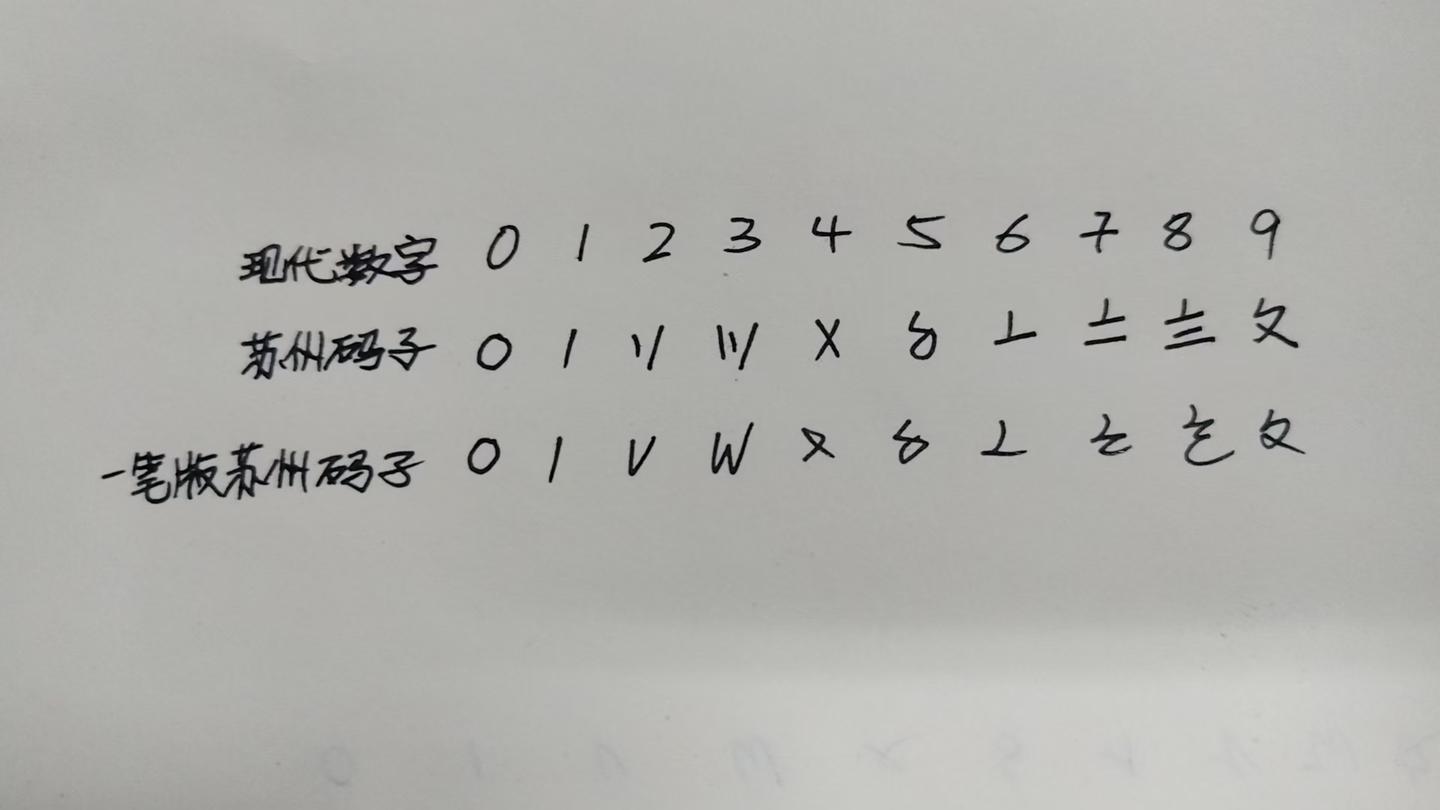 现代数字 0 1 2 3 4 5 6 7 8 9
苏州码子 〇 〡 〢 〣 〤 〥 〦 〧 〨 〩
一笔版苏州码子 0 〡 V W 〤 〥 〦 〧 〨 〩